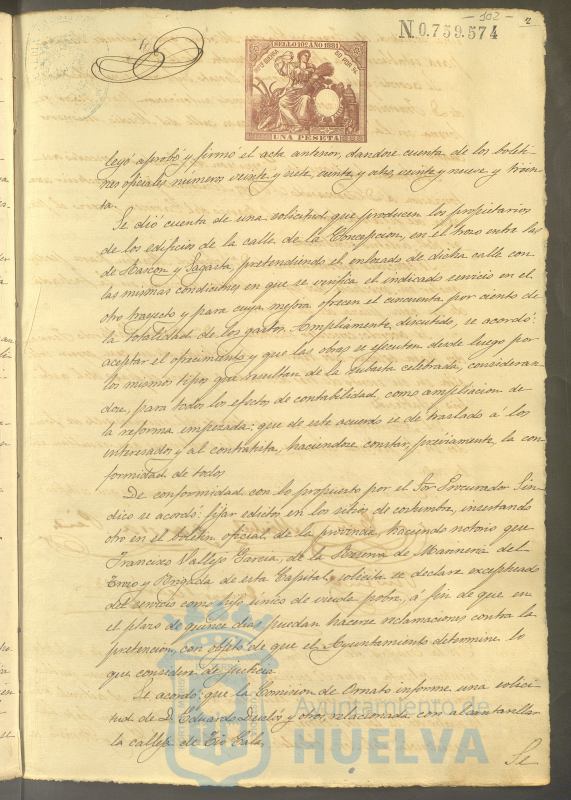 102
2
N.0.759.574
SELLO 10º AÑO 1881
50 POR %
UNA PESETA
leyó aprobó y firmó el acta anterior, dandose cuenta de los boleti-
nes oficiales números veinte y siete, veinte y ocho, veinte y nueve y trein-
ta.
Se dió cuenta de una solicitud que producen los propietarios
de los edificios de la calle de la Concepcion, en el trozo entre las
de Rascon y Sagasta, pretendiendo el enlozado de dicha calle con
las mismas condiciones en que se verifica el indicado servicio en el
otro trayecto y para cuya mejora ofrecen el cincuenta por ciento de
la totalidad de los gastos. Ampliamente, discutido, se acordó:
aceptar el ofrecimiento y que las obras se ejecuten desde luego por
los mismos tipos que resultan de la subasta celebrada, consideran-
dose, para todos los efectos de contabilidad, como ampliacion de
la reforma empezada: que de este acuerdo se de traslado a los
interesados y al contratista, haciendose constar, previamente, la con-
formidad de todos
De conformidad con lo propuesto por el Sor Procurador Sín-
dico se acordó: fijar edictos en los sitios de costumbre, insertando
otro en el boletin oficial de la provincia, haciendo notorio que
Francisco Vallejo Garcia, de la Reserva de Marineria del
Trozo y Brigada de esta Capital, solicita se declare exceptuado
del servicio como hijo único de viuda pobre, á fin de que en
el plazo de quince dias puedan hacerse reclamaciones contra la
pretencion, con objeto de que el Ayuntamiento determine lo
que considere de justicia
Se acordó: que la Comision de Ornato informe una solici-
tud de D. Eduardo Diaz y otros, relacionada con alcantarillar
la calleja de Tio Gala,
Se
Ayuntamiento de
HUELVA